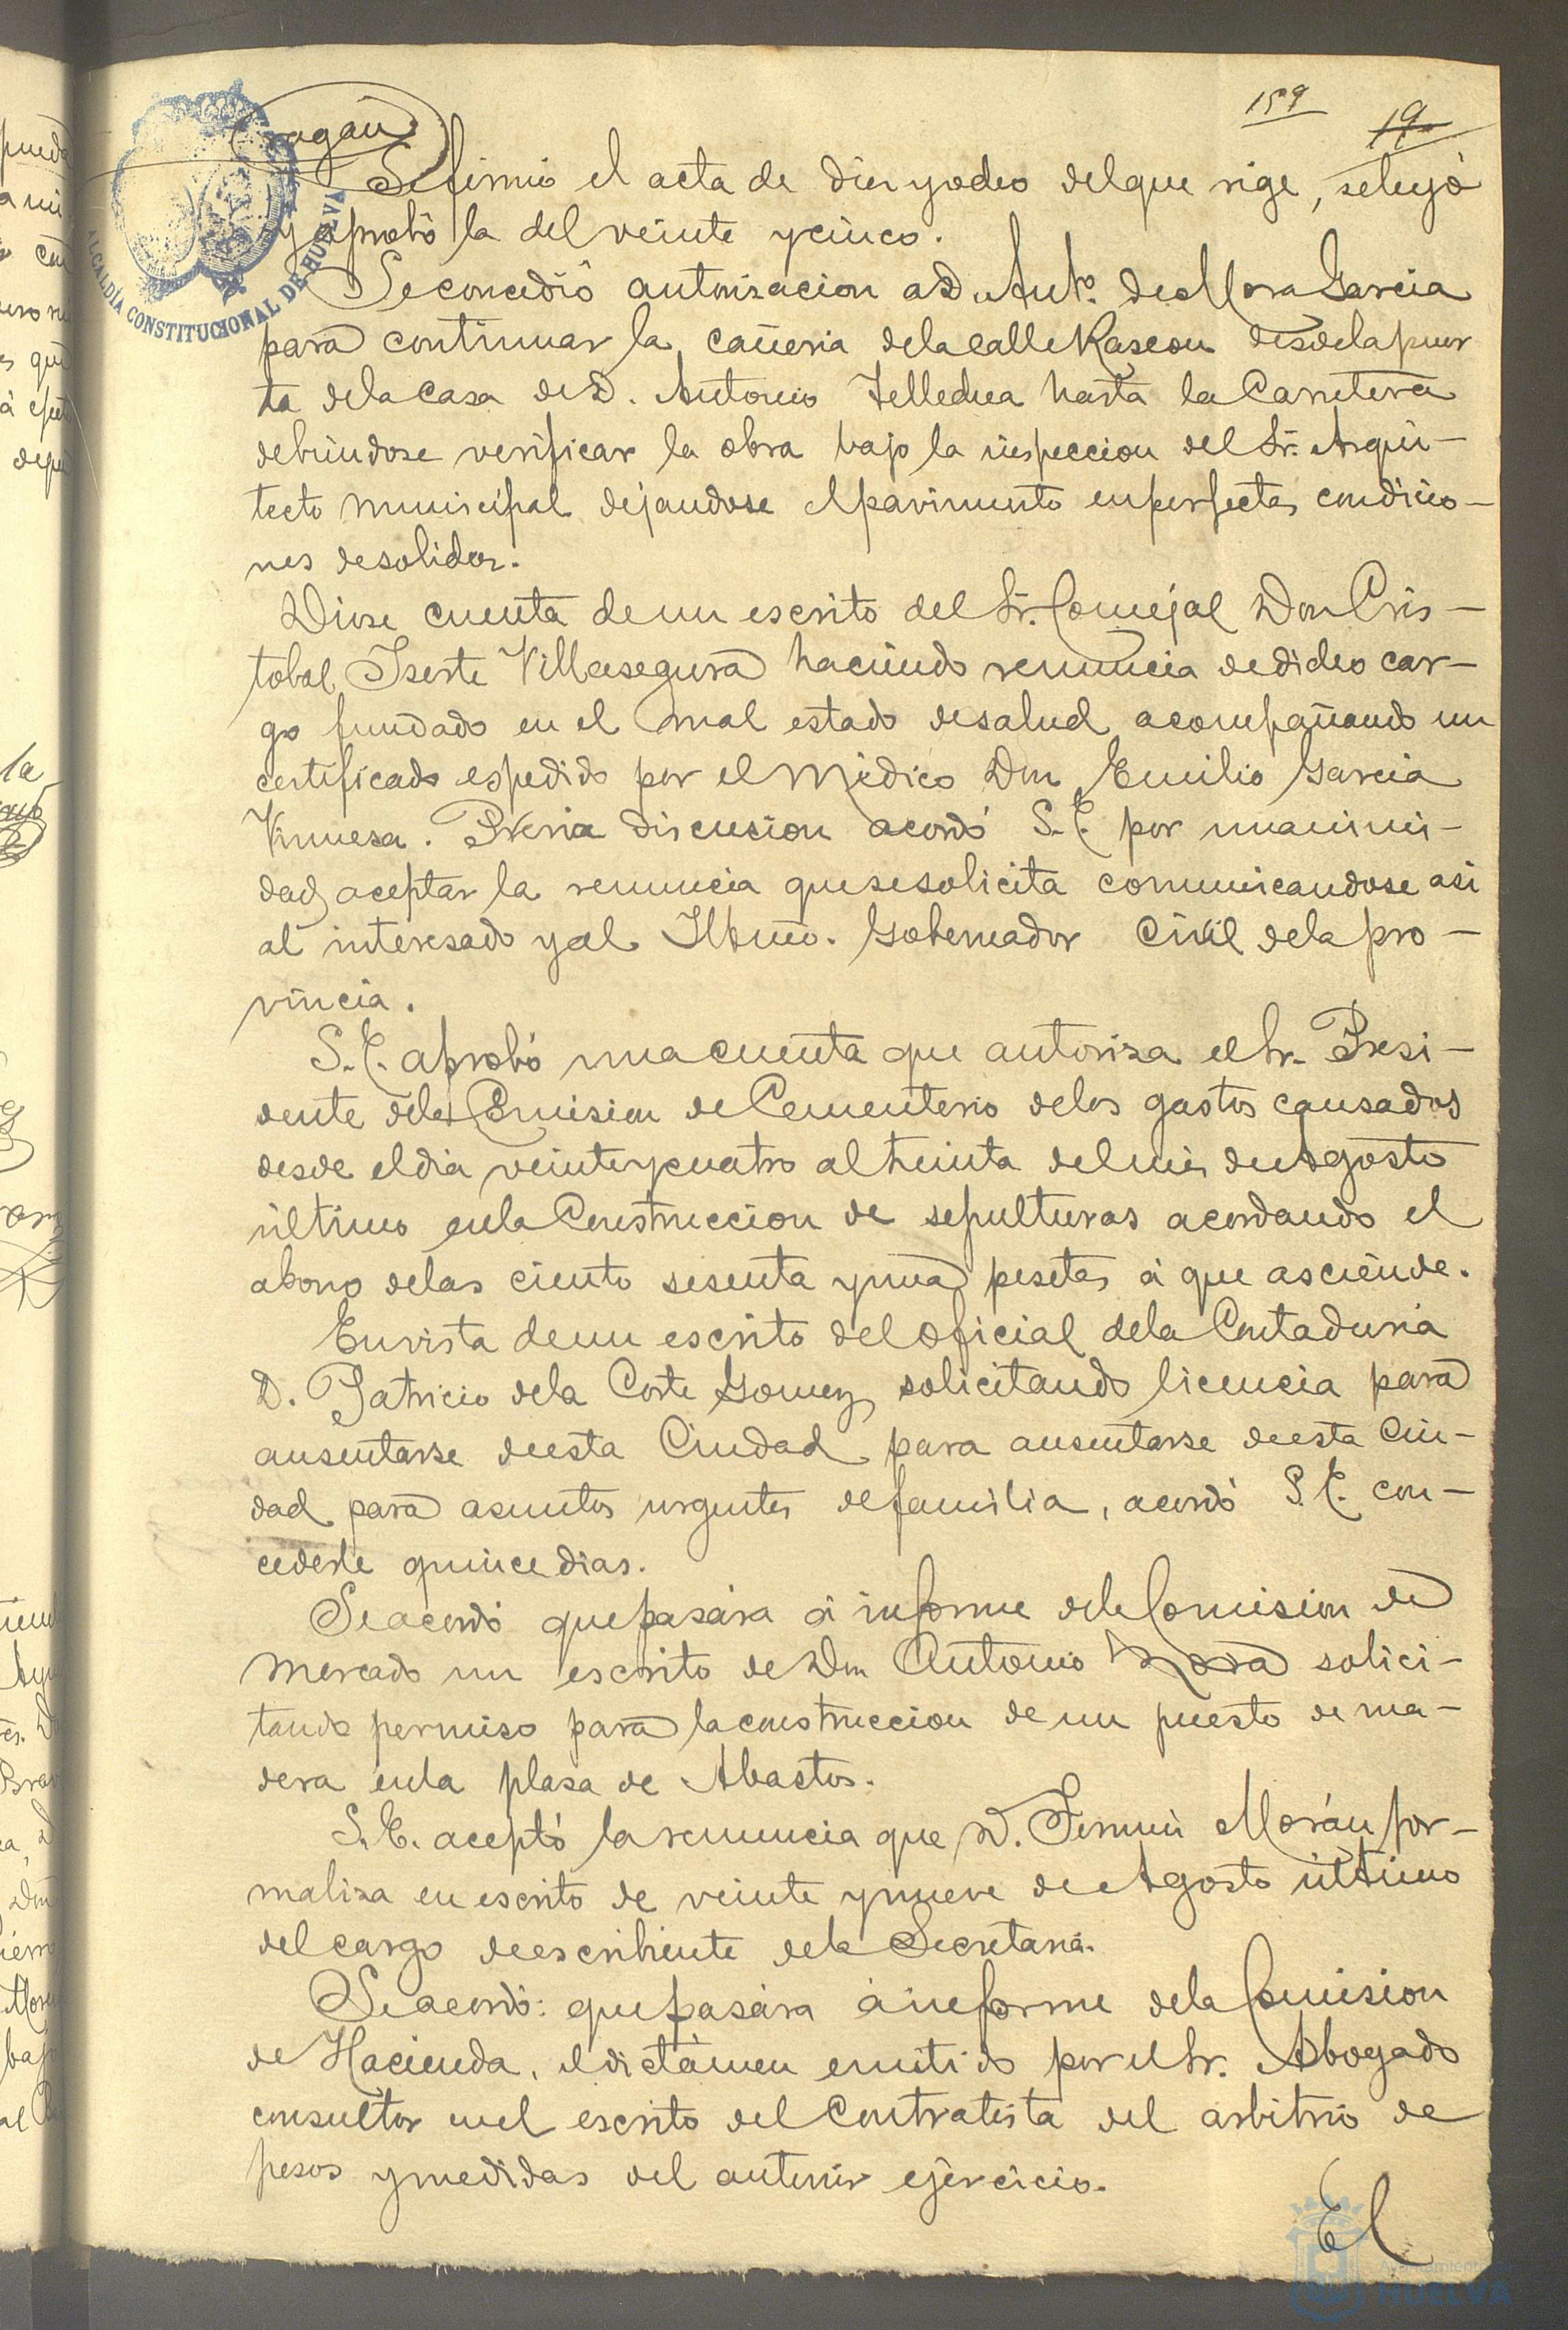 159
19
Se firmó el acta de diez y ocho del que rige, se leyó
y aprobó la del veinte y cinco.
Se concedió autorizacion a D. Antº. de Mora Garcia
para continuar la cañeria de la calle Rascon desde la puer
ta de la casa de D. Antonio hasta la Carretera
debiendose verificar la obra bajo la inspeccion del Sr. Arqui-
tecto municipal dejandose el pavimento en perfectas condicio-
nes de solidez.
Diose cuenta de un escrito del Sr. Concejal Don Cris-
tobal Iserte Villasegura haciendo renuncia de dicho car-
go fundado en el mal estado de salud acompañando un
certificado espedido por el Médico Don Emilio Garcia
Previa discusion acordó S.E. por unanimi-
dad aceptar la renuncia que se solicita comunicandose asi
al interesado y al Iltmo. Gobernador Civil de la pro-
vincia.
S.E. aprobó una cuenta que autoriza el Sr. Presi-
dente de la Comision de Cementerio de los gastos causados
desde el dia veinte y cuatro al treinta del mes de Agosto
último en la Construccion de sepulturas acordando el
abono de las ciento sesenta y una pesetas á que asciende.
En vista de un escrito del Oficial de la Contaduria
D. Patricio de la Corte Gomez solicitando licencia para
ausentarse de esta Ciudad para ausentarse de esta Ciu-
dad para asuntos urgentes de familia, acordó S.E. con-
cederle quince dias.
Se acordó que pasára á informe de la Comision de
Mercado un escrito de Don Antonio Mora solici-
tando permiso para la construccion de un puesto de ma-
dera en la plaza de Abastos.
S.E. aceptó la renuncia que D. Fermin Morán for-
maliza en escrito de veinte y nueve de Agosto último
del cargo de escribiente de la Secretaria.
Se acordó: que pasára á informe de la Comision
de Hacienda, el dictámen emitido por el Sr. Abogado
consultor en el escrito del Contratista del arbitrio de
pesos y medidas del anterior ejercicio.
El
ALCALDÍA CONSTITUCIONAL DE HUELVA
Ayuntamiento
HUELVA